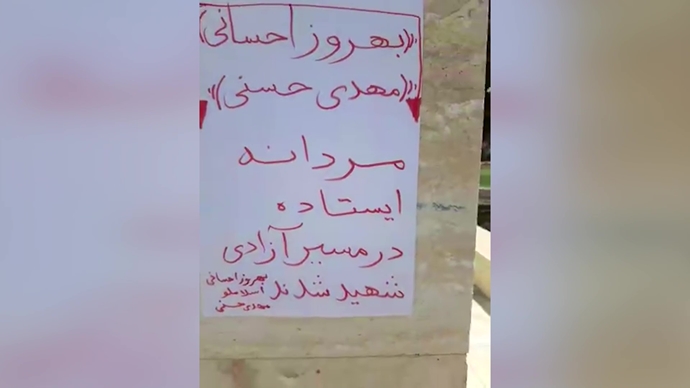 ((بهروز احسانی))
((مهدی حسنی))
مردانه
ایستاده
در مسیر آزادی
شهید شدند
بهروز احسانی
اسلاملو
مهدی حسنی